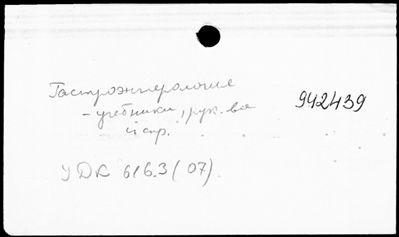 Гастроэнтерология
- учебники, рук. ва 942439
и спр.
УДК 616.3 (07).